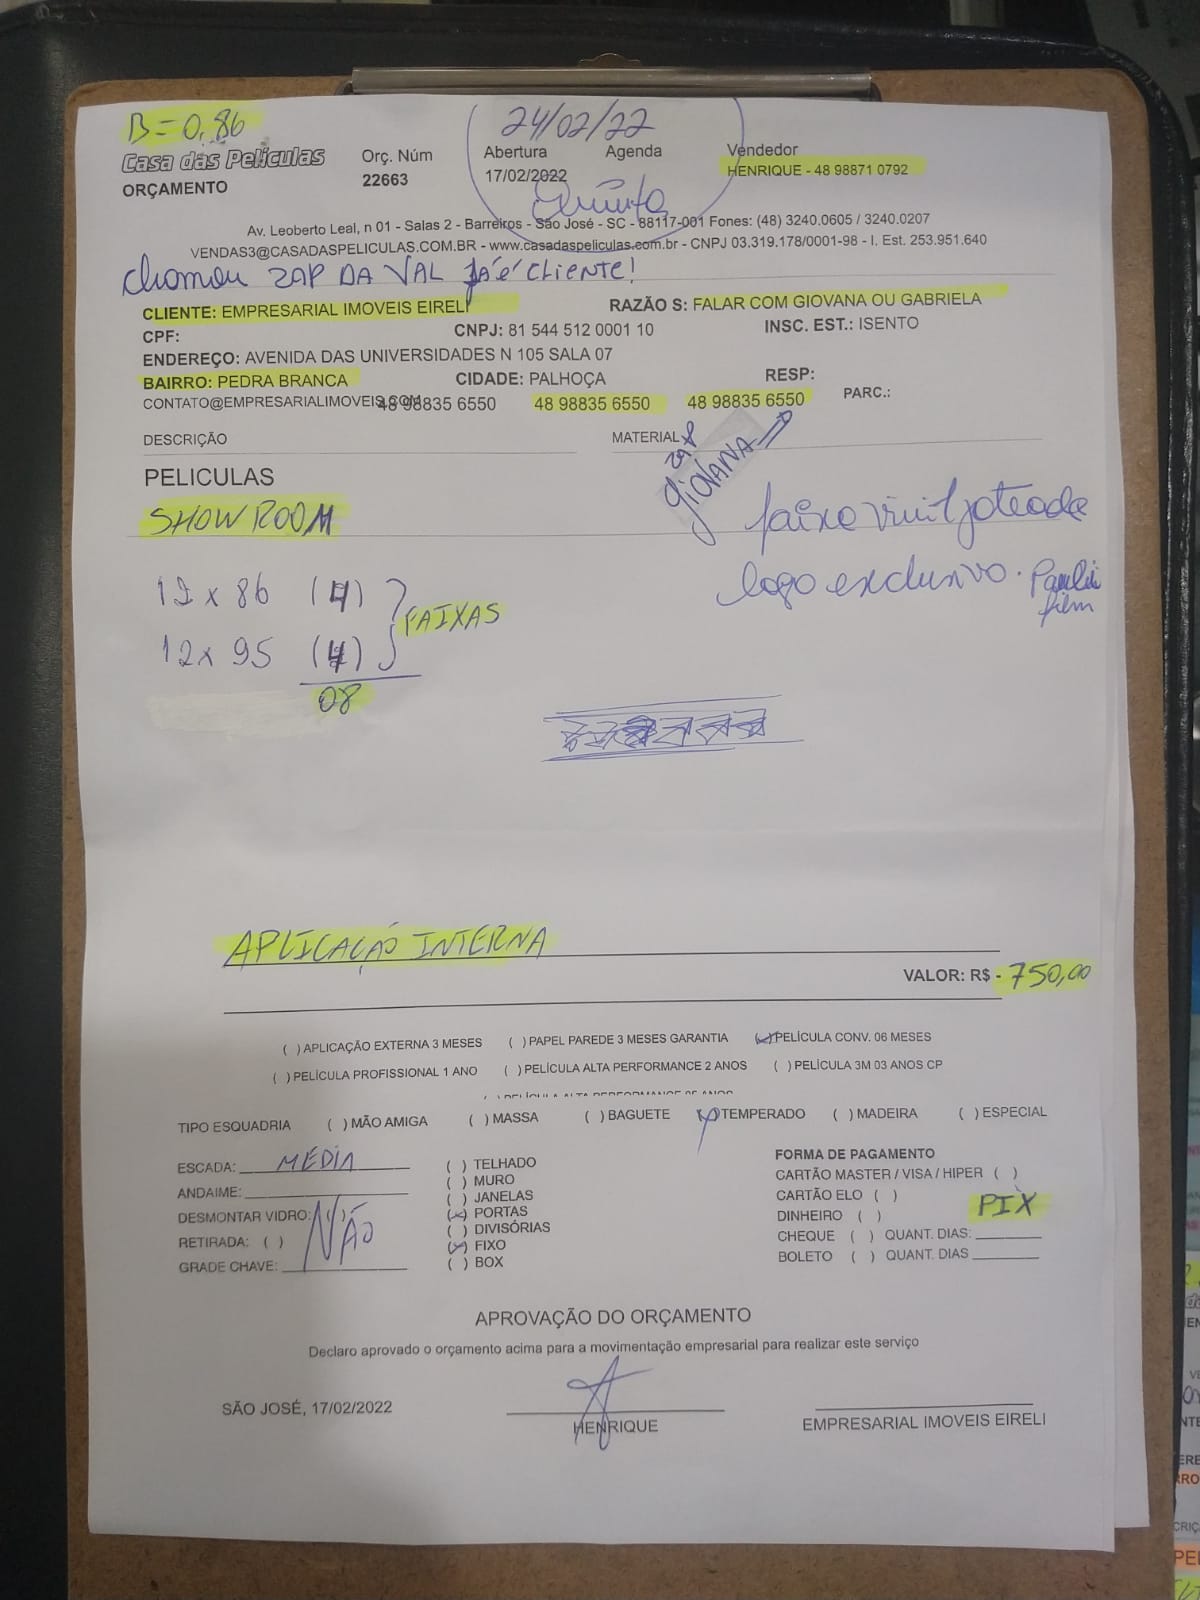 B = 0,86
24/02/22
Casa das Películas
Orç. Núm
Abertura
Agenda
Vendedor
ORÇAMENTO
22663
17/02/2022
HENRIQUE - 48 98871 0792
Quinta
Av. Leoberto Leal, n 01 - Salas 2 - Barreiros - São José - SC - 88117-001 Fones: (48) 3240.0605 / 3240.0207
VENDAS3@CASADASPELICULAS.COM.BR - www.casadaspeliculas.com.br - CNPJ 03.319.178/0001-98 - I. Est. 253.951.640
chamou ZAP DA VAL JÁ É CLIENTE!
CLIENTE: EMPRESARIAL IMOVEIS EIRELI
RAZÃO S: FALAR COM GIOVANA OU GABRIELA
CPF:
CNPJ: 81 544 512 0001 10
INSC. EST.: ISENTO
ENDEREÇO: AVENIDA DAS UNIVERSIDADES N 105 SALA 07
BAIRRO: PEDRA BRANCA
CIDADE: PALHOÇA
RESP:
CONTATO@EMPRESARIALIMOVEIS.COM
48 98835 6550
48 98835 6550
48 98835 6550
PARC.:
DESCRIÇÃO
MATERIAL
zap
GIOVANA
PELICULAS
SHOWROOM
faixa vinil jateada
logo exclusivo.
film
12 x 86 (4)
FAIXAS
12 x 95 (4)
08
APLICAÇÃO INTERNA
VALOR: R$ - 750,00
( ) APLICAÇÃO EXTERNA 3 MESES ( ) PAPEL PAREDE 3 MESES GARANTIA (x) PELÍCULA CONV. 06 MESES
( ) PELÍCULA PROFISSIONAL 1 ANO ( ) PELÍCULA ALTA PERFORMANCE 2 ANOS ( ) PELÍCULA 3M 03 ANOS CP
TIPO ESQUADRIA ( ) MÃO AMIGA ( ) MASSA ( ) BAGUETE (x) TEMPERADO ( ) MADEIRA ( ) ESPECIAL
ESCADA: MÉDIA
ANDAIME:
DESMONTAR VIDRO: ( )
RETIRADA: ( )
GRADE CHAVE:
NÃO
( ) TELHADO
( ) MURO
( ) JANELAS
(x) PORTAS
( ) DIVISÓRIAS
(x) FIXO
( ) BOX
FORMA DE PAGAMENTO
CARTÃO MASTER / VISA / HIPER ( )
CARTÃO ELO ( )
DINHEIRO ( )
PIX
CHEQUE ( ) QUANT. DIAS:
BOLETO ( ) QUANT. DIAS
APROVAÇÃO DO ORÇAMENTO
Declaro aprovado o orçamento acima para a movimentação empresarial para realizar este serviço
SÃO JOSÉ, 17/02/2022
HENRIQUE
EMPRESARIAL IMOVEIS EIRELI